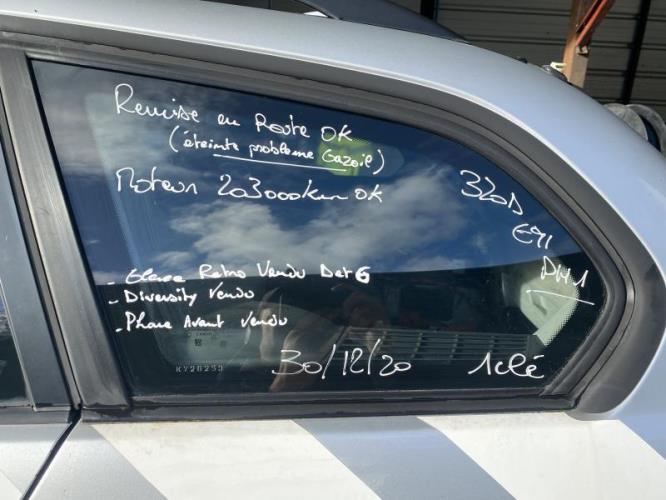 Remise en Route OK
(éteinte problème Gazoil)
Moteur 203000km OK
320D
E91
- Glace Retro Vendu D et G
- Diversity Vendu
- Phare Avant Vendu
KY28253
30/12/20
1 clé